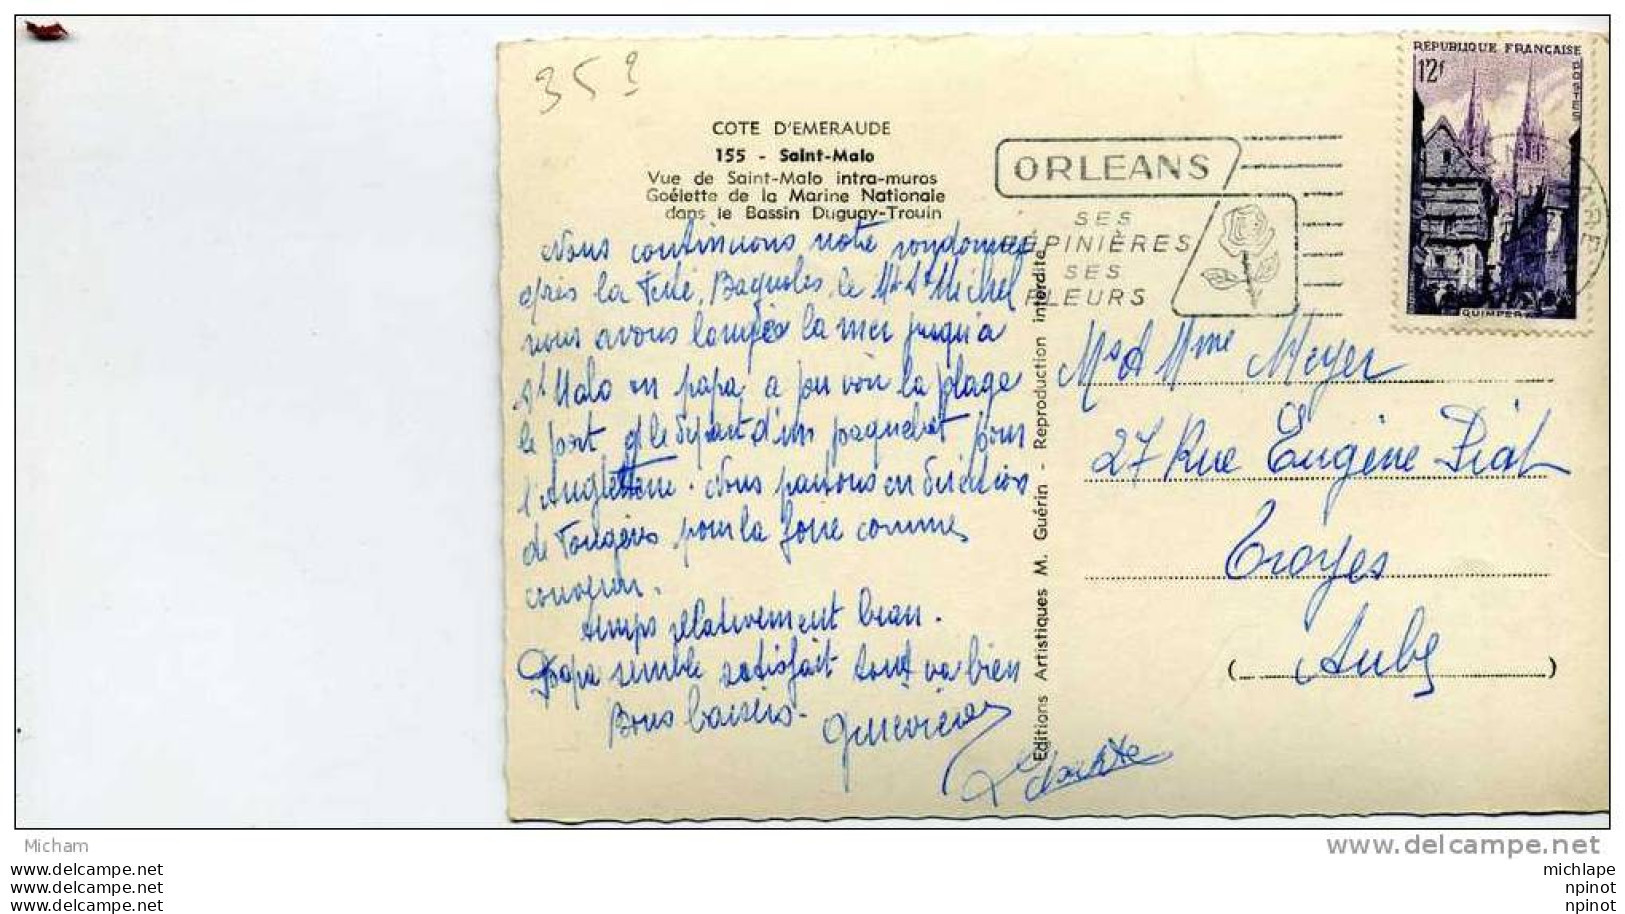 35
COTE D'EMERAUDE
155 - Saint-Malo
Vue de Saint-Malo intra-muros
Goélette de la Marine Nationale
dans le Bassin Duguay-Trouin
Nous continuons notre randonnée
après la Ferté, Bagnoles, le Mt St Michel
nous avons longée la mer jusqu'à
St Malo où papa a pu voir la plage
le port et le départ d'un paquebot pour
l'Angleterre. Nous partons en direction
de Fougères pour la foire comme
convenu.
temps relativement beau.
Papa semble satisfait tout va bien
Bons baisers.
Geneviève
Editions Artistiques M. Guérin - Reproduction interdite
ORLEANS
SES
PÉPINIÈRES
SES
FLEURS
RÉPUBLIQUE FRANÇAISE
12f
POSTES
QUIMPER
Mr & Mme Meyer
27 Rue Eugène Piat
Troyes
(Aube)
Micham
www.delcampe.net
michlape
npinot
npinot
michlape
npinot
npinot